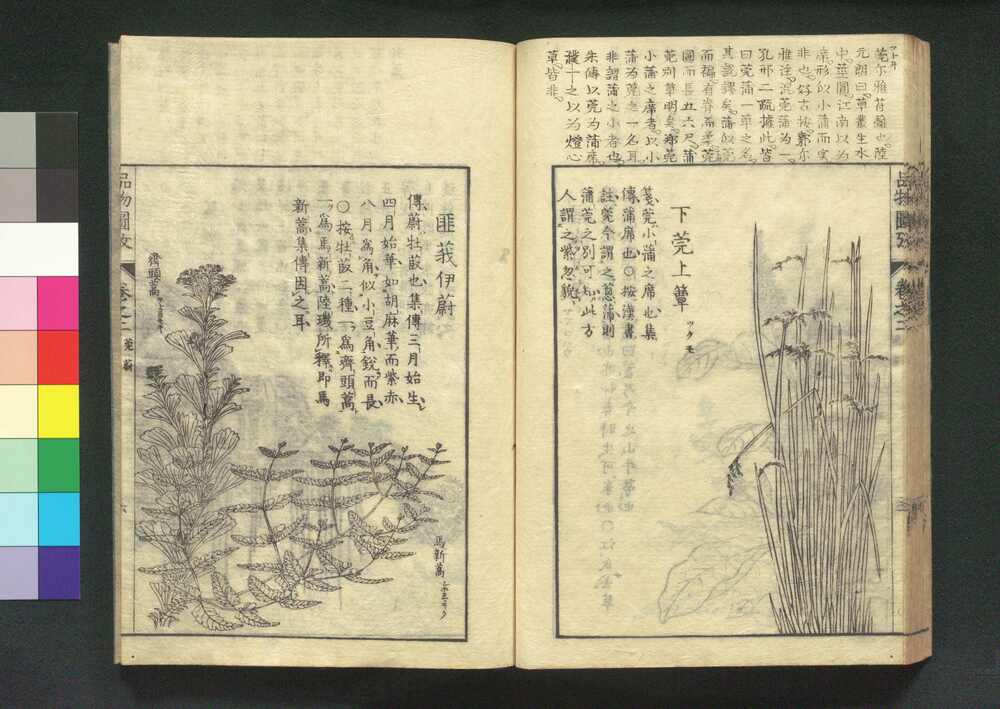 莞尔雅苻蘺也陸
元朗曰草叢生水
中莖圓江南以為
席形似小蒲而实
非也好古按鄭尔
雅注混莞蒲為一
孔邢二疏據此皆
曰莞蒲一草之名
其説謬矣蒲似莞
而褊有脊而柔莞
圓而長五六尺蒲
莞別草明矣鄭莞
小蒲之席者以小
蒲為莞之一名耳
非謂蒲之小者也
朱傳以莞為蒲席
草皆非
下莞上簟
ツクモ
箋莞小蒲之席也集
傳蒲席也〇按漢書
註莞今謂之葱蒲則
蒲莞之別可知此方
人謂之紫忽貌
品物圖攷
卷之三
匪莪伊蔚
傳蔚牡菣也集傳三月始生
四月始華如胡麻華而紫赤
八月為角似小豆角鋭而長
〇按牡菣二種一為齊頭蒿
一為馬新蒿陸璣所釋即馬
新蒿集傳因之耳
齊頭蒿
馬新蒿
品物圖攷
卷之三